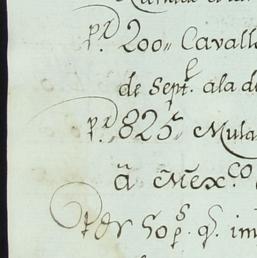 pr. 200,, Cavall
de Sept. ala de
pr. 825,, Mula
â Mex.co
Por 50 ps. q. im